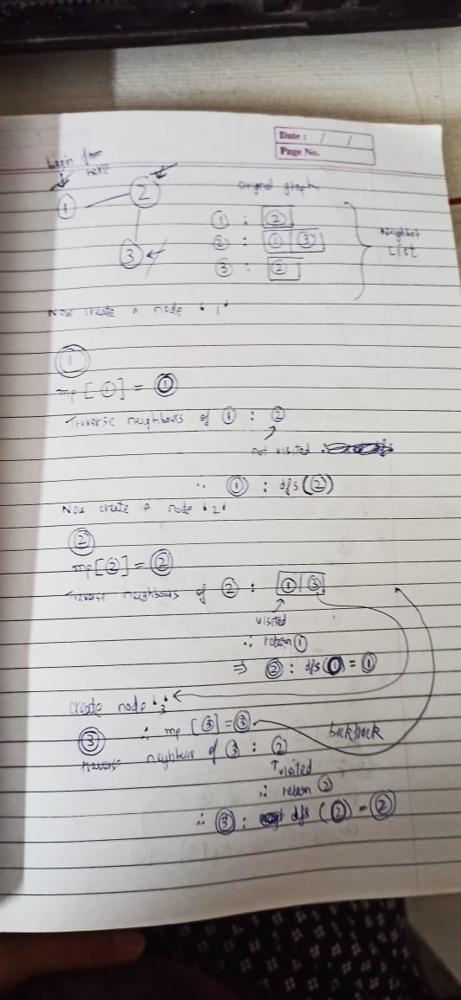 Date : / /
Page No.
begin from
here
1
2
3
original graph
① : ②
② : ① ③
③ : ②
Neighbor
List
Now create a node '1'
①
mp[①] = ①
Traverse neighbours of ① : ②
not visited
∴ ① : dfs(②)
Now create a node '2'
②
mp[②] = ②
Traverse neighbours of ② : ① ③
visited
∴ return ①
⇒ ② : dfs(①) = ①
create node '3'
③ ∴ mp[③] = ③
backtrack
traverse neighbour of ③ : ②
visited
∴ return ②
∴ ③ : dfs(②) = ②